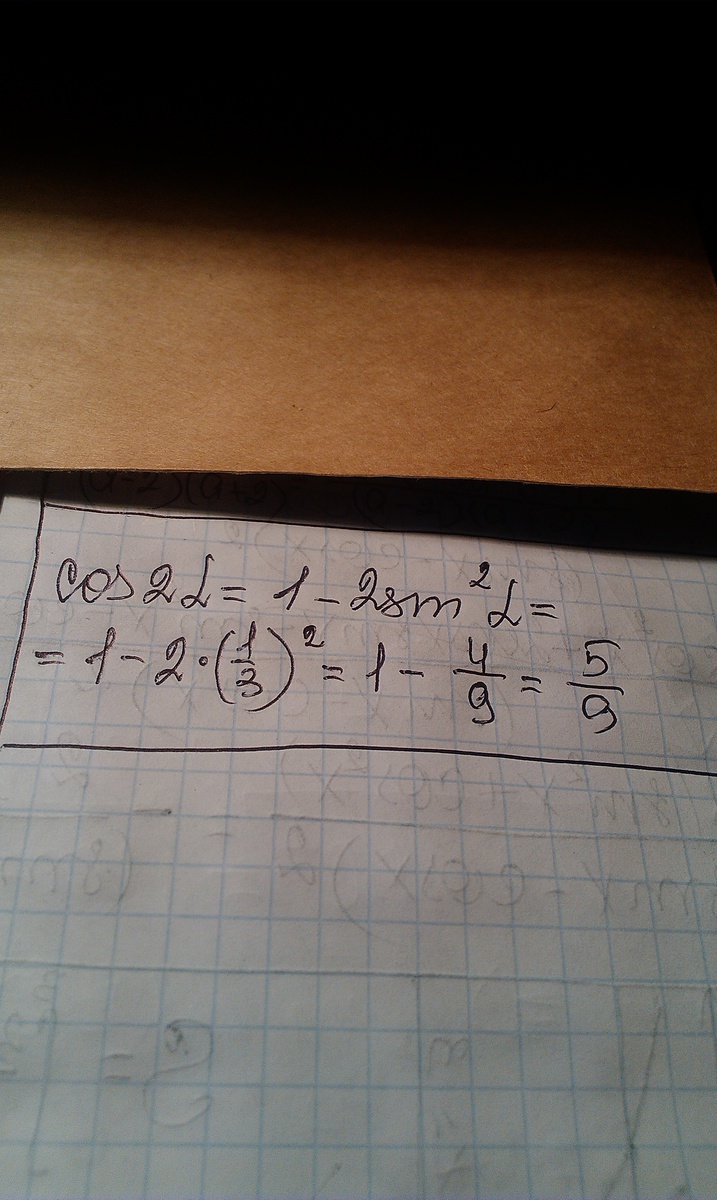 cos 2α = 1 - 2sin²α =
= 1 - 2·(1/3)² = 1 - 4/9 = 5/9